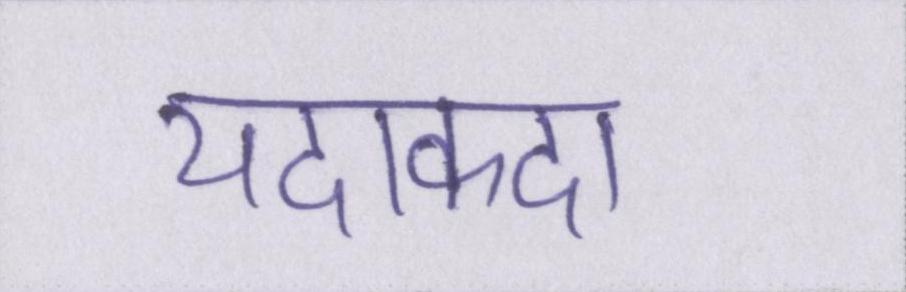 यदाकदा